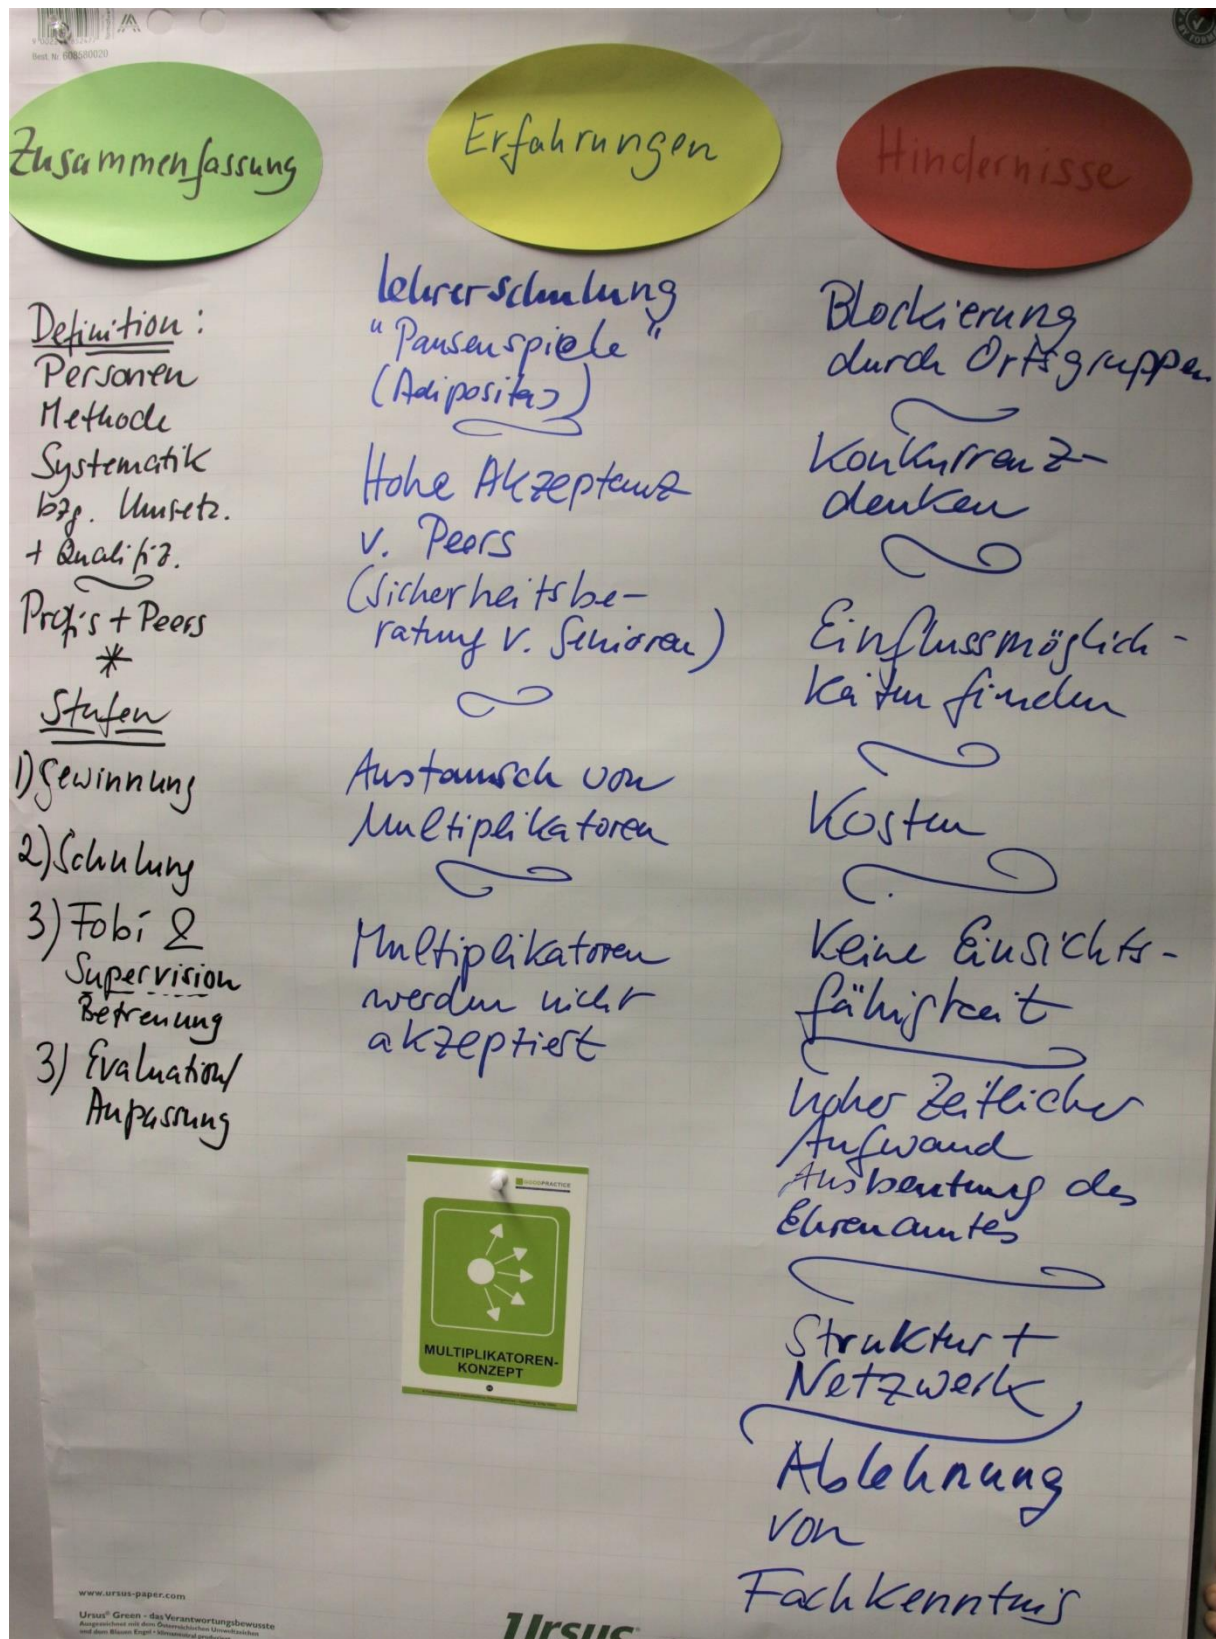 Best. Nr. 608580020
Zusammenfassung
Definition:
Personen
Methode
Systematik
bzg. Umsetz.
+ Qualifiz.
Profis + Peers
*
Stufen
1) Gewinnung
2) Schulung
3) Fobi &
Supervision
Betreuung
3) Evaluation/
Anpassung
Erfahrungen
Lehrerschulung
"Pausenspiele"
(Adipositas)
Hohe Akzeptanz
v. Peers
(Sicherheitsbe-
ratung v. Senioren)
Austausch von
Multiplikatoren
Multiplikatoren
werden nicht
akzeptiert
GOODPRACTICE
MULTIPLIKATOREN-
KONZEPT
Hindernisse
Blockierung
durch Ortsgruppen
Konkurrenz-
denken
Einflussmöglich-
keiten finden
Kosten
Keine Einsichts-
fähigkeit
hoher Zeitlicher
Aufwand
Ausbeutung des
Ehrenamtes
Struktur +
Netzwerk
Ablehnung
von
Fachkenntnis
www.ursus-paper.com
Ursus® Green - das Verantwortungsbewusste
Ausgezeichnet mit dem Österreichischen Umweltzeichen
und dem Blauen Engel • klimaneutral
Ursus